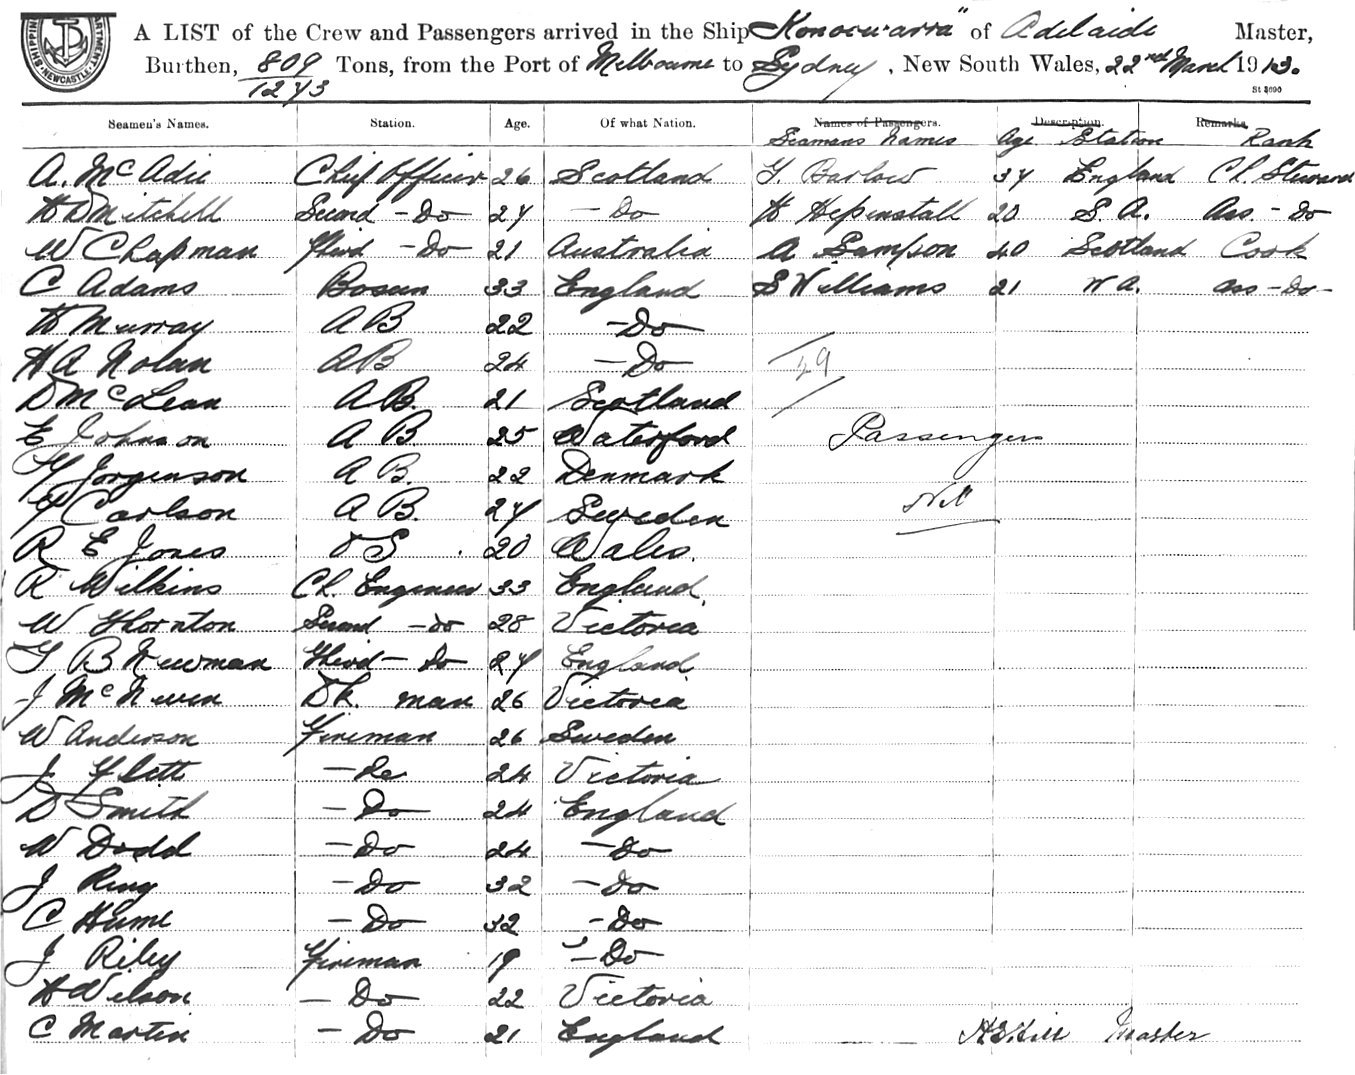 A LIST of the Crew and Passengers arrived in the Ship "Konoowarra" of Adelaide Master,
Burthen, 809 Tons, from the Port of Melbourne to Sydney, New South Wales, 22nd March 1913.
1273
St 3690
Seamen's Names. Station. Age. Of what Nation. Names of Passengers. Description. Remarks.
Seamans Names Age Station Rank
A. McAdie Chief Officer 26 Scotland G. Barlow 34 England Ch. Steward
H D Mitchell Second - Do 27 - Do H Hepinstall 20 S A. Ass. - Do
W Chapman Third - Do 21 Australia A Sampson 40 Scotland Cook
C Adams Bosun 33 England S Williams 21 W A. Ass - Do -
H Murray A B 22 - Do
H A Nolan A B 24 - Do
29
D McLean A B. 21 Scotland
E Johnson A B 25 Waterford Passengers
Y Jorgenson A B. 22 Denmark
Y Carlson A B. 27 Sweden Nil
R E Jones O S. 20 Wales.
R Wilkins Ch. Engineer 33 England.
W Thornton Second - do 28 Victoria
G B Newman Third - Do 27 England
J McNiven Dk. man 26 Victoria
W Anderson Fireman 26 Sweden
J Flett - Do 24 Victoria
D Smith - Do 24 England
W Dodd - Do 24 - Do
J Ring - Do 32 - Do
C Hume - Do 32 - Do
J Riley Fireman 19 - Do
H Wilson - Do 22 Victoria
C Martin - Do 21 England Master